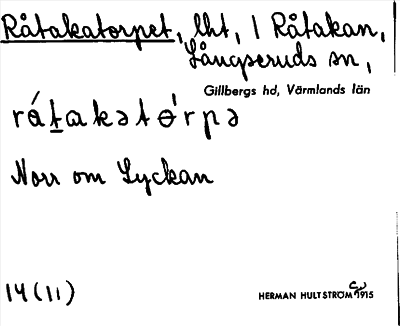 Råtakatorpet, lht, 1 Råtakan,
Långseruds sn,
Gillbergs hd, Värmlands län
rǻt̲akətɵ́rpə
Norr om Lyckan
14 (11)
HERMAN HULTSTRÖM 1915